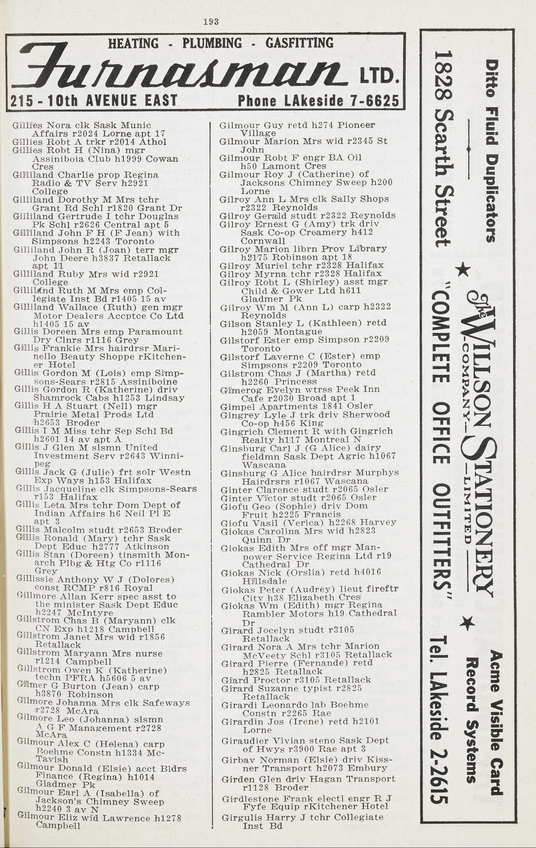 193
HEATING - PLUMBING - GASFITTING
Furnasman LTD.
215 - 10th AVENUE EAST Phone LAkeside 7-6625
Gillies Nora clk Sask Munic
Affairs r2024 Lorne apt 17
Gillies Robt A trkr r2014 Athol
Gillies Robt H (Nina) mgr
Assiniboia Club h1999 Cowan
Cres
Gilliland Charlie prop Regina
Radio & TV Serv h2921
College
Gilliland Dorothy M Mrs tchr
Grant Rd Schl r1820 Grant Dr
Gilliland Gertrude I tchr Douglas
Pk Schl r2626 Central apt 5
Gilliland John F H (F Jean) with
Simpsons h2243 Toronto
Gilliland John R (Joan) terr mgr
John Deere h3837 Retallack
apt 11
Gilliland Ruby Mrs wid r2921
College
Gilliland Ruth M Mrs emp Col-
legiate Inst Bd r1405 15 av
Gilliland Wallace (Ruth) gen mgr
Motor Dealers Accptce Co Ltd
h1405 15 av
Gillis Doreen Mrs emp Paramount
Dry Clnrs r1116 Grey
Gillis Frankie Mrs hairdrsr Mari-
nello Beauty Shoppe rKitchen-
er Hotel
Gillis Gordon M (Lois) emp Simp-
sons-Sears r2815 Assiniboine
Gillis Gordon R (Katherine) driv
Shamrock Cabs h1253 Lindsay
Gillis H A Stuart (Nell) mgr
Prairie Metal Prods Ltd
h2653 Broder
Gillis I M Miss tchr Sep Schl Bd
h2601 14 av apt A
Gillis J Glen M slsmn United
Investment Serv r2643 Winni-
peg
Gillis Jack G (Julie) frt solr Westn
Exp Ways h153 Halifax
Gillis Jacqueline clk Simpsons-Sears
r153 Halifax
Gillis Leta Mrs tchr Dom Dept of
Indian Affairs h6 Neil Pl E
apt 3
Gillis Malcolm studt r2653 Broder
Gillis Ronald (Mary) tchr Sask
Dept Educ h2777 Atkinson
Gillis Stan (Doreen) tinsmith Mon-
arch Plbg & Htg Co r1116
Grey
Gillissie Anthony W J (Dolores)
const RCMP r816 Royal
Gillmore Allan Kerr spec asst to
the minister Sask Dept Educ
h2247 McIntyre
Gillstrom Chas B (Maryann) clk
CN Exp h1218 Campbell
Gillstrom Janet Mrs wid r1856
Retallack
Gillstrom Maryann Mrs nurse
r1214 Campbell
Gillstrom Owen K (Katherine)
techn PFRA h5606 5 av
Gilmer G Burton (Jean) carp
h3870 Robinson
Gilmore Johanna Mrs clk Safeways
r2728 McAra
Gilmore Leo (Johanna) slsmn
A G F Management r2728
McAra
Gilmour Alex C (Helena) carp
Boehme Constn h1334 Mc-
Tavish
Gilmour Donald (Elsie) acct Bldrs
Finance (Regina) h1014
Gladmer Pk
Gilmour Earl A (Isabella) of
Jackson's Chimney Sweep
h2240 3 av N
Gilmour Eliz wid Lawrence h1278
Campbell
Gilmour Guy retd h274 Pioneer
Village
Gilmour Marion Mrs wid r2345 St
John
Gilmour Robt F engr BA Oil
h50 Lamont Cres
Gilmour Roy J (Catherine) of
Jacksons Chimney Sweep h200
Lorne
Gilroy Ann L Mrs clk Sally Shops
r2322 Reynolds
Gilroy Gerald studt r2322 Reynolds
Gilroy Ernest G (Amy) trk driv
Sask Co-op Creamery h412
Cornwall
Gilroy Marion librn Prov Library
h2175 Robinson apt 18
Gilroy Muriel tchr r2328 Halifax
Gilroy Myrna tchr r2328 Halifax
Gilroy Robt L (Shirley) asst mgr
Child & Gower Ltd h611
Gladmer Pk
Gilroy Wm M (Ann L) carp h2322
Reynolds
Gilson Stanley L (Kathleen) retd
h2059 Montague
Gilstorf Ester emp Simpson r2209
Toronto
Gilstorf Laverne C (Ester) emp
Simpsons r2209 Toronto
Gilstrom Chas J (Martha) retd
h2260 Princess
Gimerog Evelyn wtrss Peek Inn
Cafe r2030 Broad apt 1
Gimpel Apartments 1841 Osler
Gingrey Lyle J trk driv Sherwood
Co-op h456 King
Gingrich Clement R with Gingrich
Realty h117 Montreal N
Ginsburg Carl J (G Alice) dairy
fieldmn Sask Dept Agric h1067
Wascana
Ginsburg G Alice hairdrsr Murphys
Hairdrsrs r1067 Wascana
Ginter Clarence studt r2065 Osler
Ginter Victor studt r2065 Osler
Giofu Geo (Sophie) driv Dom
Fruit h2225 Francis
Giofu Vasil (Verica) h2268 Harvey
Giokas Carolina Mrs wid h2823
Quinn Dr
Giokas Edith Mrs off mgr Man-
power Service Regina Ltd r19
Cathedral Dr
Giokas Nick (Orslia) retd h4016
Hillsdale
Giokas Peter (Audrey) lieut fireftr
City h38 Elizabeth Cres
Giokas Wm (Edith) mgr Regina
Rambler Motors h19 Cathedral
Dr
Girard Jocelyn studt r3105
Retallack
Girard Nora A Mrs tchr Marion
McVeety Schl r3105 Retallack
Girard Pierre (Fernande) retd
h2825 Retallack
Giard Proctor r3105 Retallack
Girard Suzanne typist r2825
Retallack
Girardi Leonardo lab Boehme
Constn r2265 Rae
Girardin Jos (Irene) retd h2101
Lorne
Giraudier Vivian steno Sask Dept
of Hwys r3900 Rae apt 3
Girbav Norman (Elsie) driv Kiss-
ner Transport h2073 Embury
Girden Glen driv Hagan Transport
r1128 Broder
Girdlestone Frank electl engr R J
Fyfe Equip rKitchener Hotel
Girgulis Harry J tchr Collegiate
Inst Bd
Ditto Fluid Duplicators
1828 Scarth Street
The WILLSON STATIONERY
COMPANY LIMITED
"COMPLETE OFFICE OUTFITTERS"
Acme Visible Card
Record Systems
Tel. LAkeside 2-2615